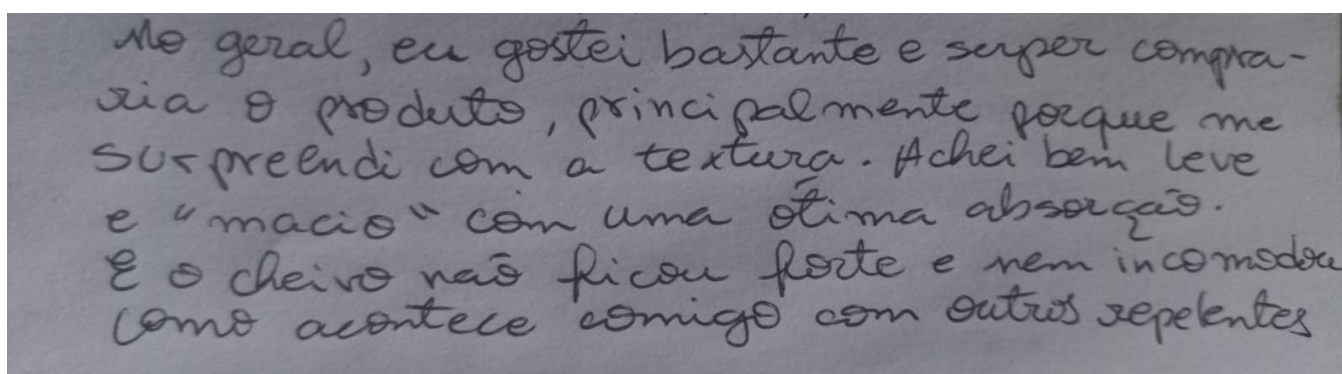 No geral, eu gostei bastante e super compra-
ria o produto, principalmente porque me
surpreendi com a textura. Achei bem leve
e "macio" com uma ótima absorção.
E o cheiro não ficou forte e nem incomodou
como acontece comigo com outros repelentes